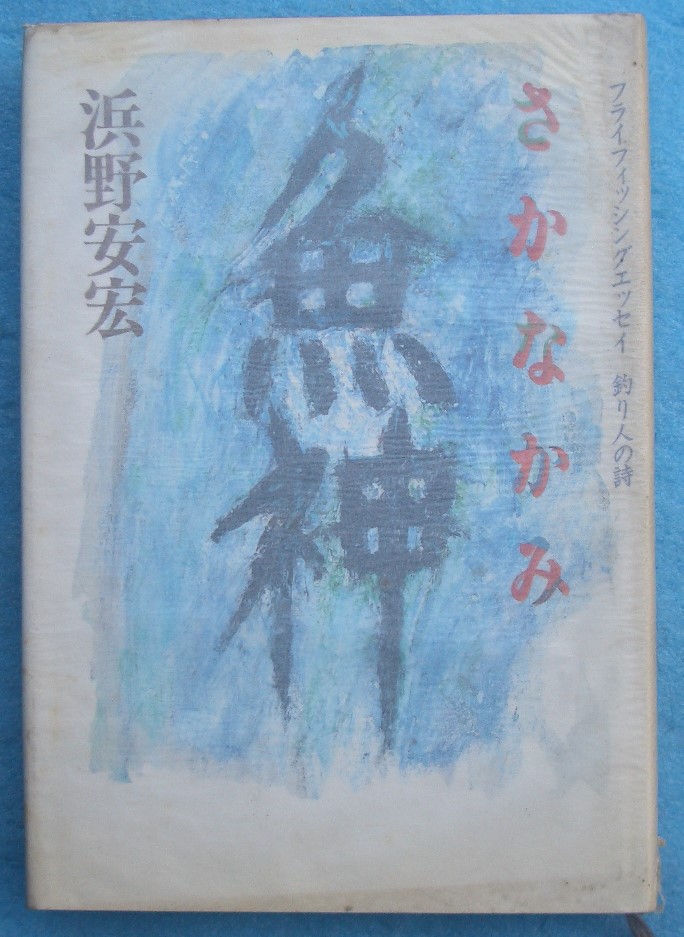 フライフィッシングエッセイ 釣り人の詩
さかなかみ
魚神
浜野安宏